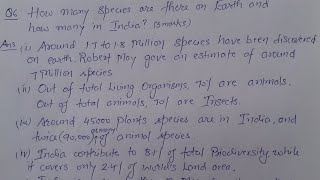 Q6 How many species are there on Earth and
how many in India? (3 marks)
Ans (i) Around 1.7 to 1.8 Million species have been discovered
on earth. Robert May gave an estimate of around
7 Million species
(ii) Out of total Living Organisms, 70% are animals.
Out of total animals, 70% are Insects.
(iii) Around 45000 plants species are in India, and
twice (90,000) of animal species
(iv) India contribute to 8.1% of total Biodiversity while
it covers only 2.4% of world's Land area.